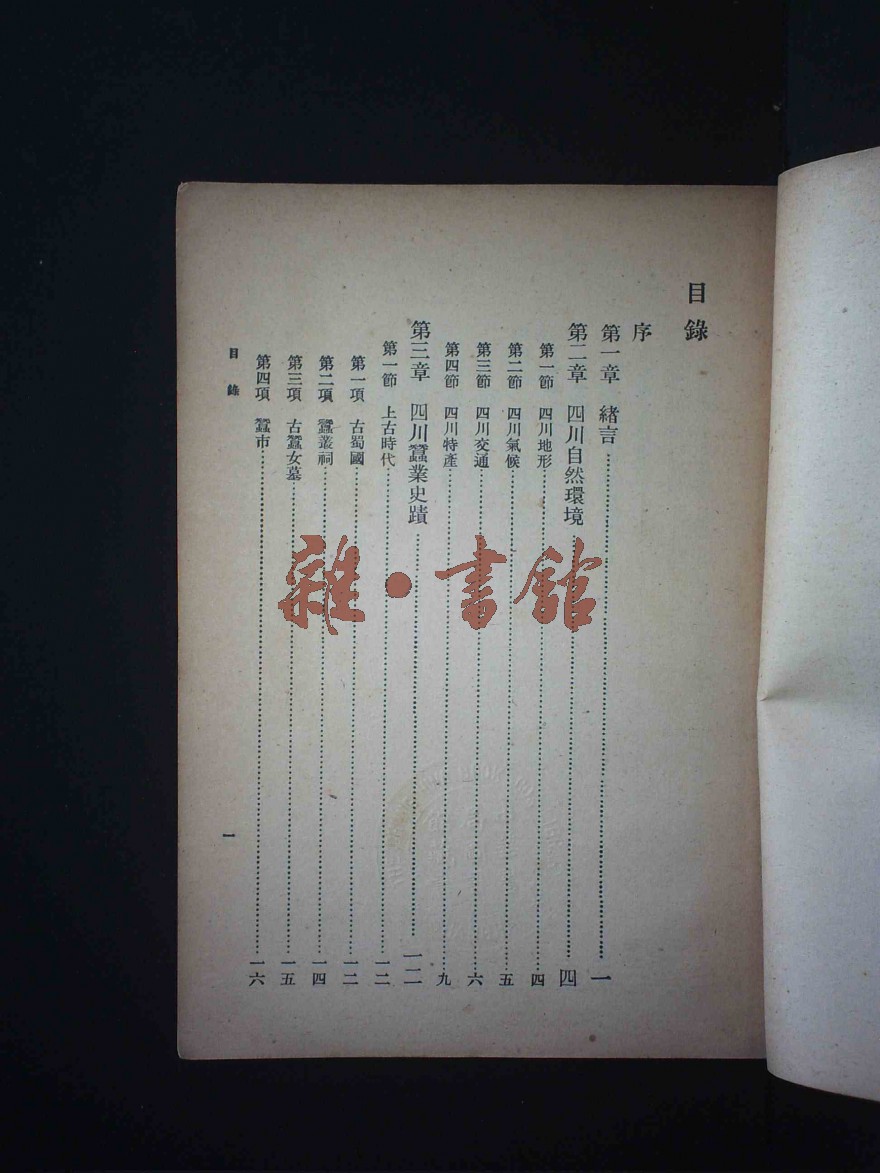 目錄
序
第一章 緒言⋯⋯一
第二章 四川自然環境⋯⋯四
第一節 四川地形⋯⋯四
第二節 四川氣候⋯⋯五
第三節 四川交通⋯⋯六
第四節 四川特產⋯⋯九
第三章 四川蠶業史蹟⋯⋯一二
第一節 上古時代⋯⋯一二
第一項 古蜀國⋯⋯一二
第二項 蠶叢祠⋯⋯一四
第三項 古蠶女墓⋯⋯一五
第四項 蠶市⋯⋯一六
目錄
一
雜·書館